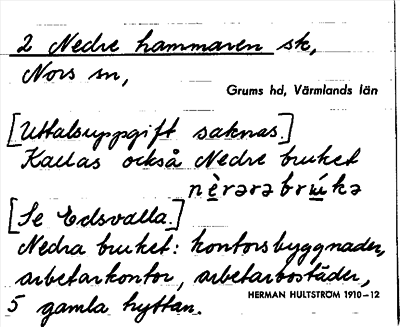 2 Nedre hammaren sk,
Nors sn,
Grums hd, Värmlands län
[Uttalsuppgift saknas.]
Kallas också Nedre bruket
nèrərə brúkə
[Se Edsvalla.]
Nedra bruket: kontorsbyggnader,
arbetarkontor, arbetarbostäder,
HERMAN HULTSTRÖM 1910-12
5 gamla hyttan.